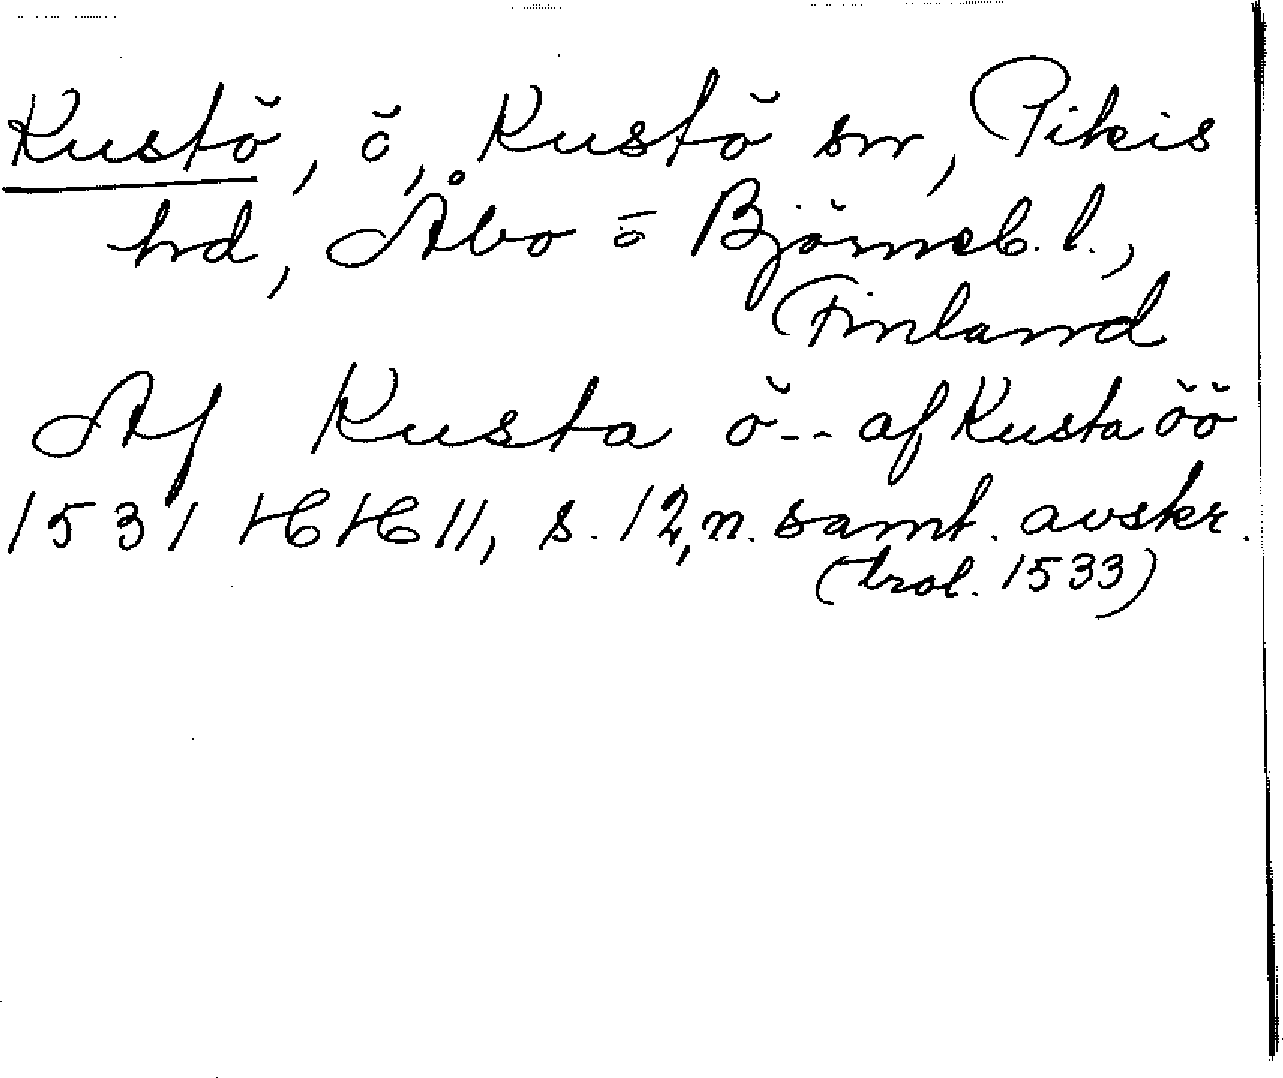 Kustö, ö, Kustö sn, Pikis
hd, Åbo o Björneb. l.,
Finland
Af Kusta ö -- af Kusta öö
1531 HH 11, s. 12, n. samt. avskr.
(trol. 1533)